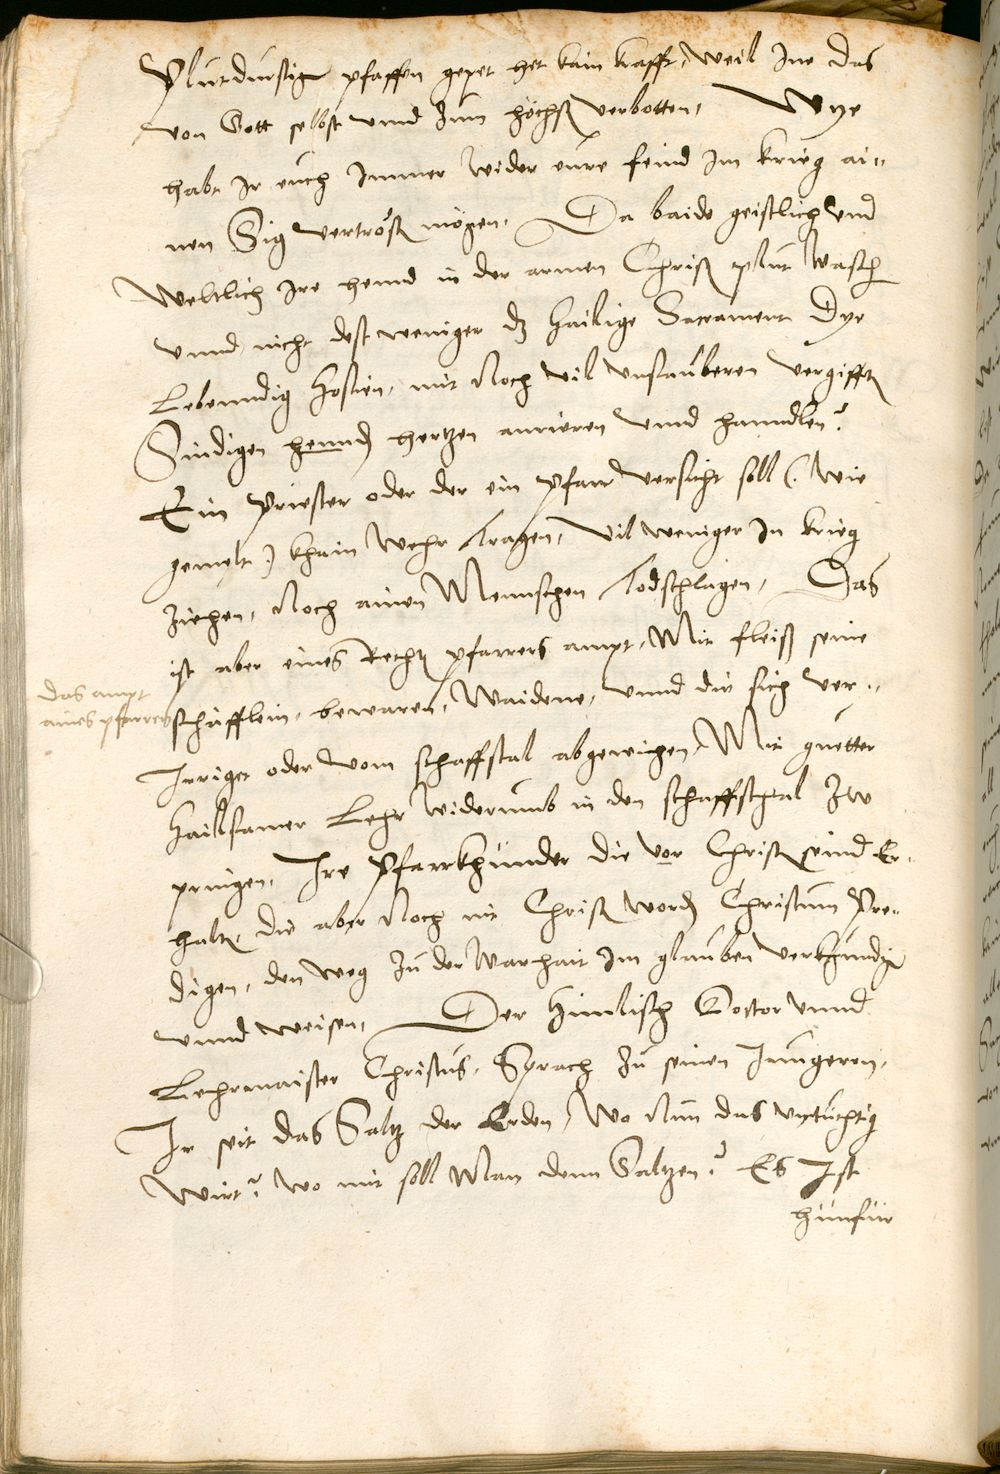 Plutdurstigen pfaffen gepet het kain krafft, Weil Ine das
von Gott selbst vnnd zum höchsten verbotten, Wye
habt Ir euch Immer Wider eure feind Im krieg ai=
nen Sig vertrösten mögen, Da baide geistlich vnd
Weltlich Ire hennd in der armen Christen plut Wasch
vnnd nicht dest weniger dz Hailige Sacrament Dye
Lebenndig hostien, mit Noch vil vnsauberen vergifften
Sindigen hennd hertzen anrieren vnnd hanndlen?
Ein Priester oder der ein Pfarr versicht soll (: wie
gemelt :) khain Wehr Tragen, Vil weniger In krieg
ziehen, Noch ainen Mennschen Todschlagen, Das
ist aber eines Rechten pfarrers ampt, Mit fleiß seine
Das ampt
aines pfarrers
schäfflein, bewaren, Waidene, vnnd die sich ver=
Irriget oder vom schaffstal abgewichen, Mit guetter
hailsamer Lehr Widerumb in den schaffstal Zw
pringen, Ire Pfarrkhinder die vor Christen seind Er=
halten, die aber Noch nit Christen worden Christum Pre=
digen, den weg zu der Warhait Im glauben verkhundigen
vnnd weisen, Der Himlisch Doctor vnnd
Lehrmaister Christus, Sprach zu seinen Jungeren,
Ir seit das Saltz der Erden, Wo Nun das vntüchtig
Wirt? Wo mit soll Man denn Saltzen? Es Ist
hünfür